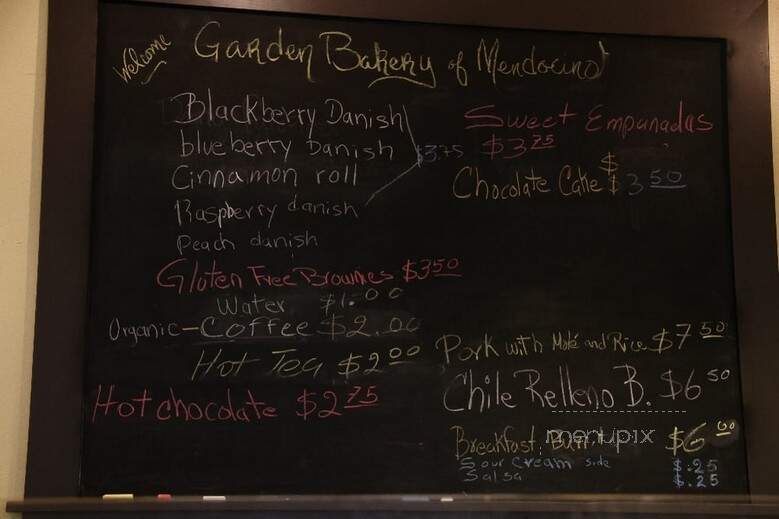 Welcome
Garden Bakery of Mendocino
Blackberry Danish
blueberry Danish
Cinnamon roll
Raspberry danish
Peach danish
$3.75
Gluten Free Brownies $3.50
Water $1.00
Organic-Coffee $2.00
Hot Tea $2.00
Hot chocolate $2.75
Sweet Empanadas
$3.75
Chocolate Cake $3.50
Pork with Molé and Rice $7.50
Chile Relleno B. $6.50
Breakfast $6.00
Sour Cream side $.25
Salsa $.25
menupix